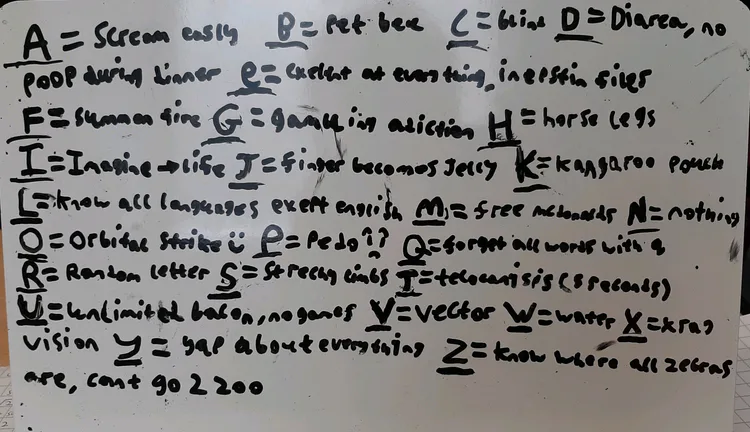 A = Scream easly B = Pet bee C = blind D = Diarea, no
poop during dinner e = exelent at everything, in epstin files
F = Summon fire G = gambling adiction H = horse legs
I = Imagine → life J = finger becomes Jelly K = kangaroo pouch
L = know all languages exept english M = free mcdonalds N = nothing
O = Orbital strike :) P = Pedo!? Q = forget all words with q
R = Random letter S = Strechy limbs T = telecanisis (8 seconds)
U = unlimited bacon, no games V = vector W = water X = xray
vision Y = yap about everything Z = know where all zebras
are, cant go 2 zoo